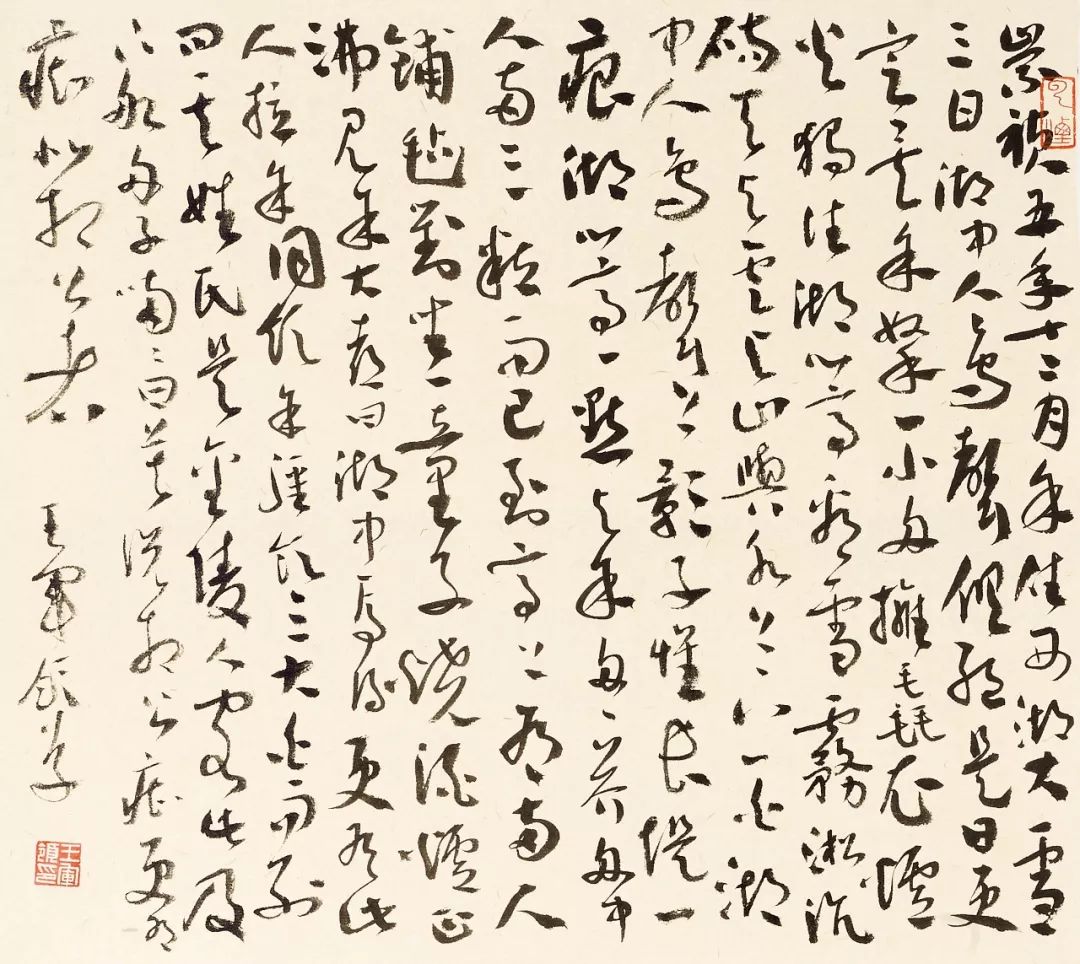 崇禎五年十二月余住西湖大雪
三日湖中人鳥聲俱絕是日更
定矣余拏一小舟擁毳衣爐
火獨往湖心亭看雪霧凇沆
碭天与雲与山與水上下一白湖
中人鳥聲上影子惟長堤一
痕湖心亭一點与余舟一芥舟中
人两三粒而已到亭上有两人
鋪氈對坐一童子燒酒爐正
沸見余大喜曰湖中焉得更有此
人拉余同飲余強飲三大白而别
問其姓氏是金陵人客此及
下船舟子喃喃曰莫說相公痴更有
痴似相公者
王軍領書
王軍領印